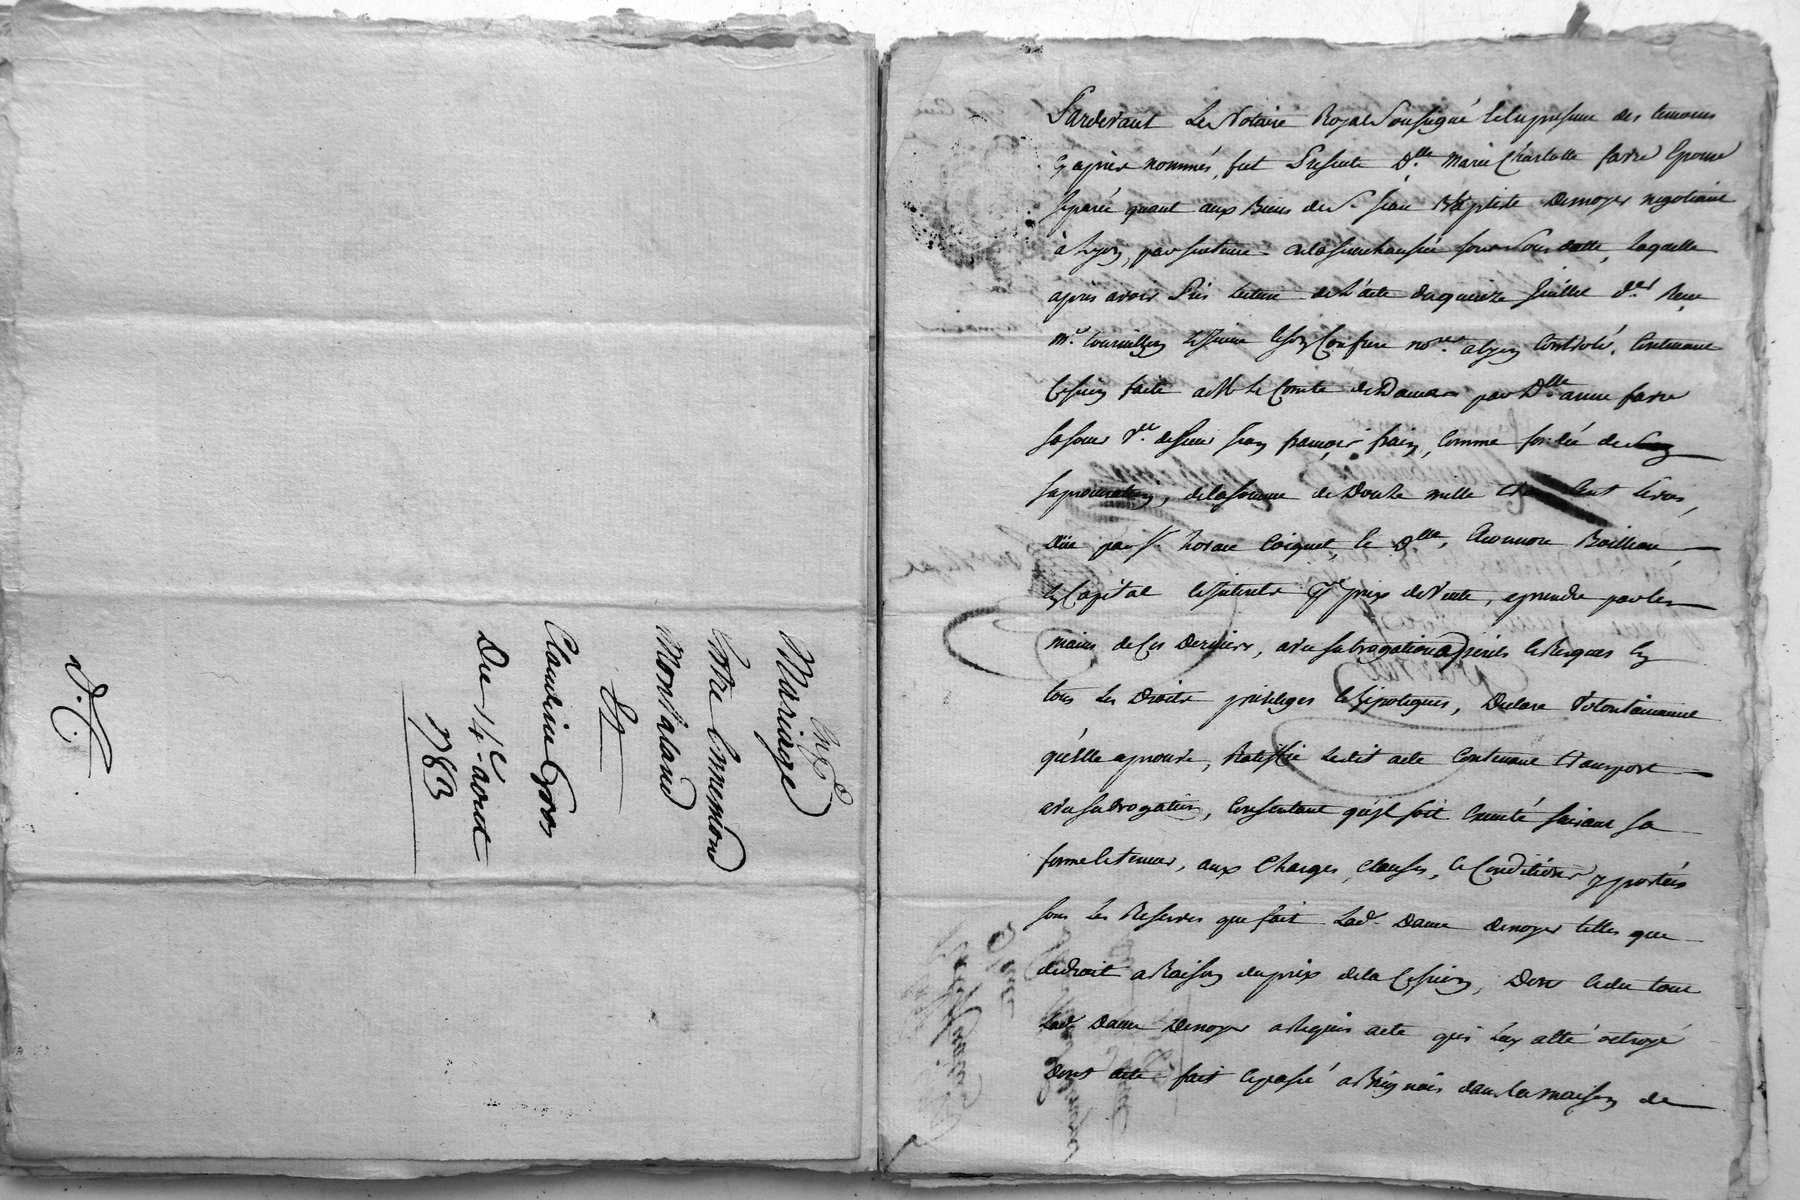 Exp.on
Mariage
Entre Ennemond
Montaland
Et
Claudine Gros
Du 14e aoust
1783
Pardevant Le Notaire Royal soussigné et en presence des temoins
cy après nommés, fut presente Dlle Marie Charlotte favre Epouse
separée quant aux Biens de Sr Jean Baptiste Denoyer negotiant
à Lyon, par sentence de la senechaussée Laquelle
après avoir Pris Lecture de L'acte du quinze Juillet der Reçu
Me et son Confrere nores a Lyon Controlé, Contenant
Cession faite a M. Le Comte de Damas par Dlle anne favre
sa soeur Ve de sieur Jean françois comme fondée de
sa procuration, de la somme de Douze mille cent Livres,
Due par Sr horace Coignet, et Dlle, Eleonnore
En Capital et interets pr prix de Vente, a prendre par les
mains de Ces Derniers, avec subrogation a perils et Risques En
tous Les Droits privileges et hipoteques, Declare Volontairement
qu'elle aprouve, Ratiffie Ledit acte Contenant transport
avec subrogation, Consentant qu'il soit Executé suivant sa
forme et teneur, aux Charges, Clauses, et Conditions y portées
sous Les Reserves que fait Lade Dame Denoyer telles que
de droit a Raison du prix de la Cession, Dont et du tout
Lade Dame Denoyer a Requis acte qui Luy a été octroyé
Dont acte fait et passé a Brignais dans La maison de